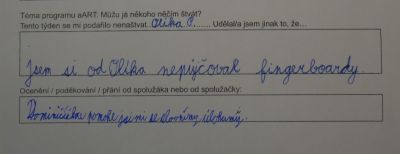 Téma programu aART. Můžu já někoho něčím štvát?
Tento týden se mi podařilo nenaštvat..Olika P....... Udělal/a jsem jinak to, že…
Jsem si od Olika nepujčoval fingerboardy
Ocenění / poděkování / přání od spolužáka nebo od spolužačky:
pomohl jsi mi se slovními úlohami.